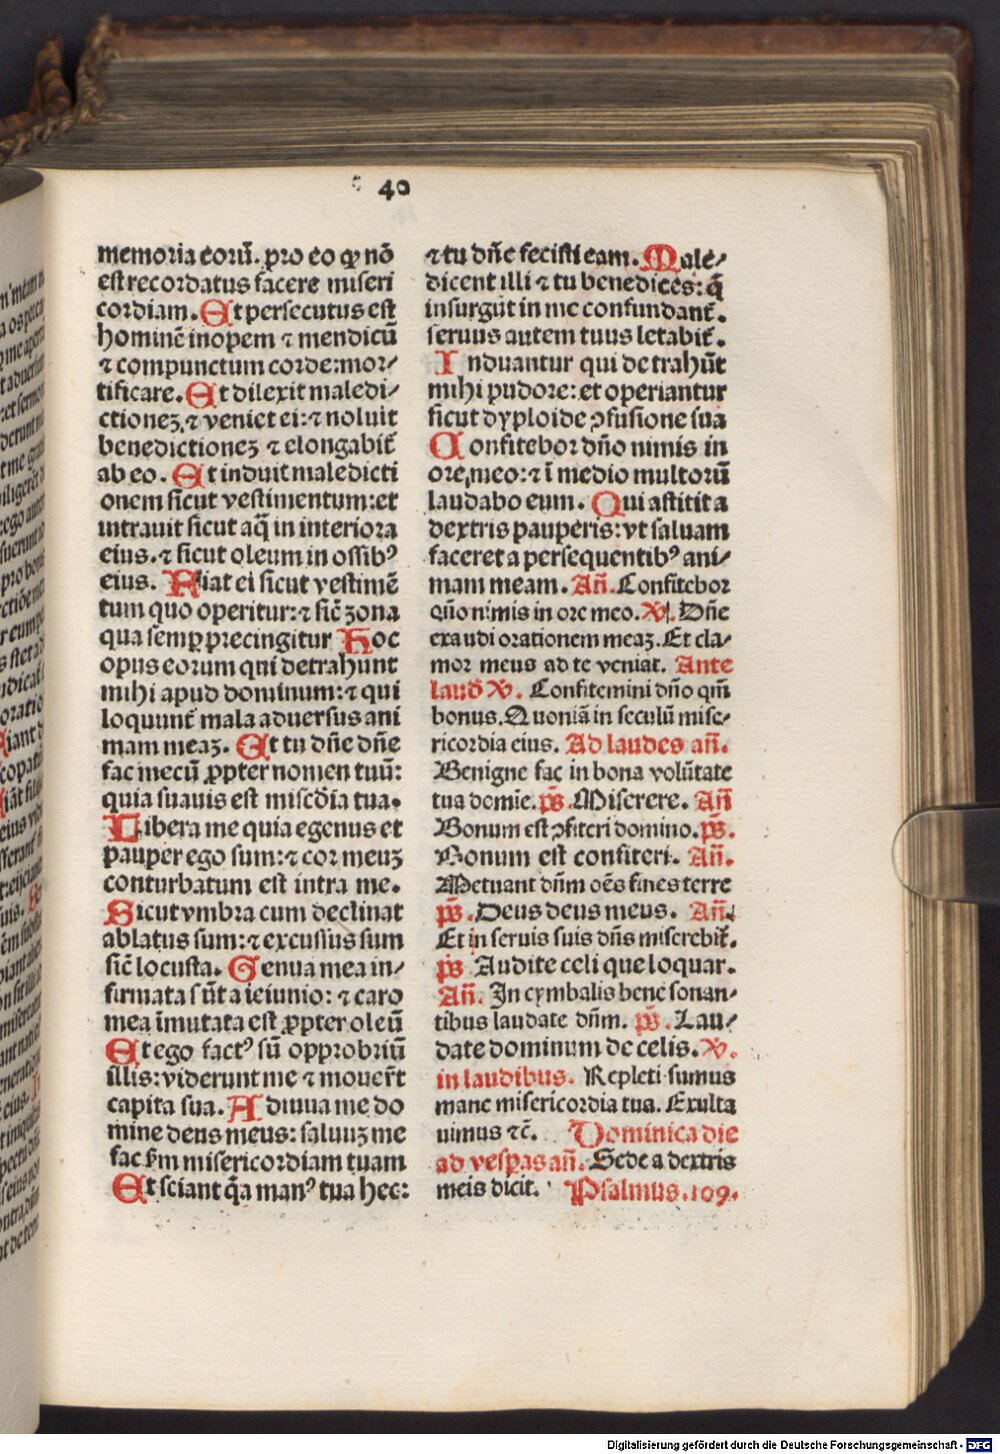 40
memoria eorū. pro eo qꝫ nō
est recordatus facere miseri
cordiam. Et persecutus est
hominē inopem ⁊ mendicū
⁊ compunctum corde: mor⸗
tificare. Et dilexit maledi⸗
ctioneꝫ, ⁊ veniet ei: ⁊ noluit
benedictioneꝫ ⁊ elongabit̄
ab eo. Et induit maledicti
onem sicut vestimentum: et
intrauit sicut aq̄ in interiora
eius. ⁊ sicut oleum in ossibꝰ
eius. Fiat ei sicut vestimē
tum quo operitur: ⁊ sic̄ zona
qua semꝑ precingitur Hoc
opus eorum qui detrahunt
mihi apud dominum: ⁊ qui
loquunt̄ mala aduersus ani
mam meaꝫ. Et tu dn̄e dn̄e
fac mecū ꝓpter nomen tuū:
quia suauis est misc̄dia tua.
Libera me quia egenus et
pauper ego sum: ⁊ cor meuꝫ
conturbatum est intra me.
Sicut vmbra cum declinat
ablatus sum: ⁊ excussus sum
sic̄ locusta. Genua mea in⸗
firmata sūt a ieiunio: ⁊ caro
mea īmutata est ꝓpter oleū
Et ego factꝰ sū opprobriū
illis: viderunt me ⁊ mouer̄t
capita sua. Adiuua me do
mine deus meus: saluuꝫ me
fac ẜm misericordiam tuam
Et sciant q̄a manꝰ tua hec:
⁊ tu dn̄e fecisti eam. Male⸗
dicent illi ⁊ tu benedices: q̄
insurgūt in me confundant̄.
seruus autem tuus letabit̄.
Induantur qui detrahūt
mihi pudore: et operiantur
sicut dyploide ꝯfusione sua
Confitebor dn̄o nimis in
ore, meo: ⁊ ī medio multorū
laudabo eum. Qui astitit a
dextris pauperis: vt saluam
faceret a persequentibꝰ ani⸗
mam meam. An̄. Confitebor
dn̄o nimis in ore meo. ℣. Dn̄e
exaudi orationem meaꝫ. Et cla⸗
mor meus ad te veniat. Ante
laud̄ ℣. Confitemini dn̄o qm̄
bonus. Quoniā in seculū mise⸗
ricordia eius. Ad laudes an̄.
Benigne fac in bona volūtate
tua domīe. ps̄. Miserere. An̄
Bonum est ꝯfiteri domino. ps̄.
Bonum est confiteri. An̄.
Metuant dn̄m oēs fines terre
ps̄. Deus deus meus. An̄.
Et in seruis suis dn̄s miserebit̄.
ps̄ Audite celi que loquar.
An̄. In cymbalis bene sonan⸗
tibus laudate dn̄m. ps̄. Lau⸗
date dominum de celis. ℣.
in laudibus. Repleti sumus
mane misericordia tua. Exulta
uimus ⁊c̄. Dominica die
ad vesꝑas an̄. Sede a dextris
meis dicit. Psalmus. 109.
Digitalisierung gefördert durch die Deutsche Forschungsgemeinschaft - DFG